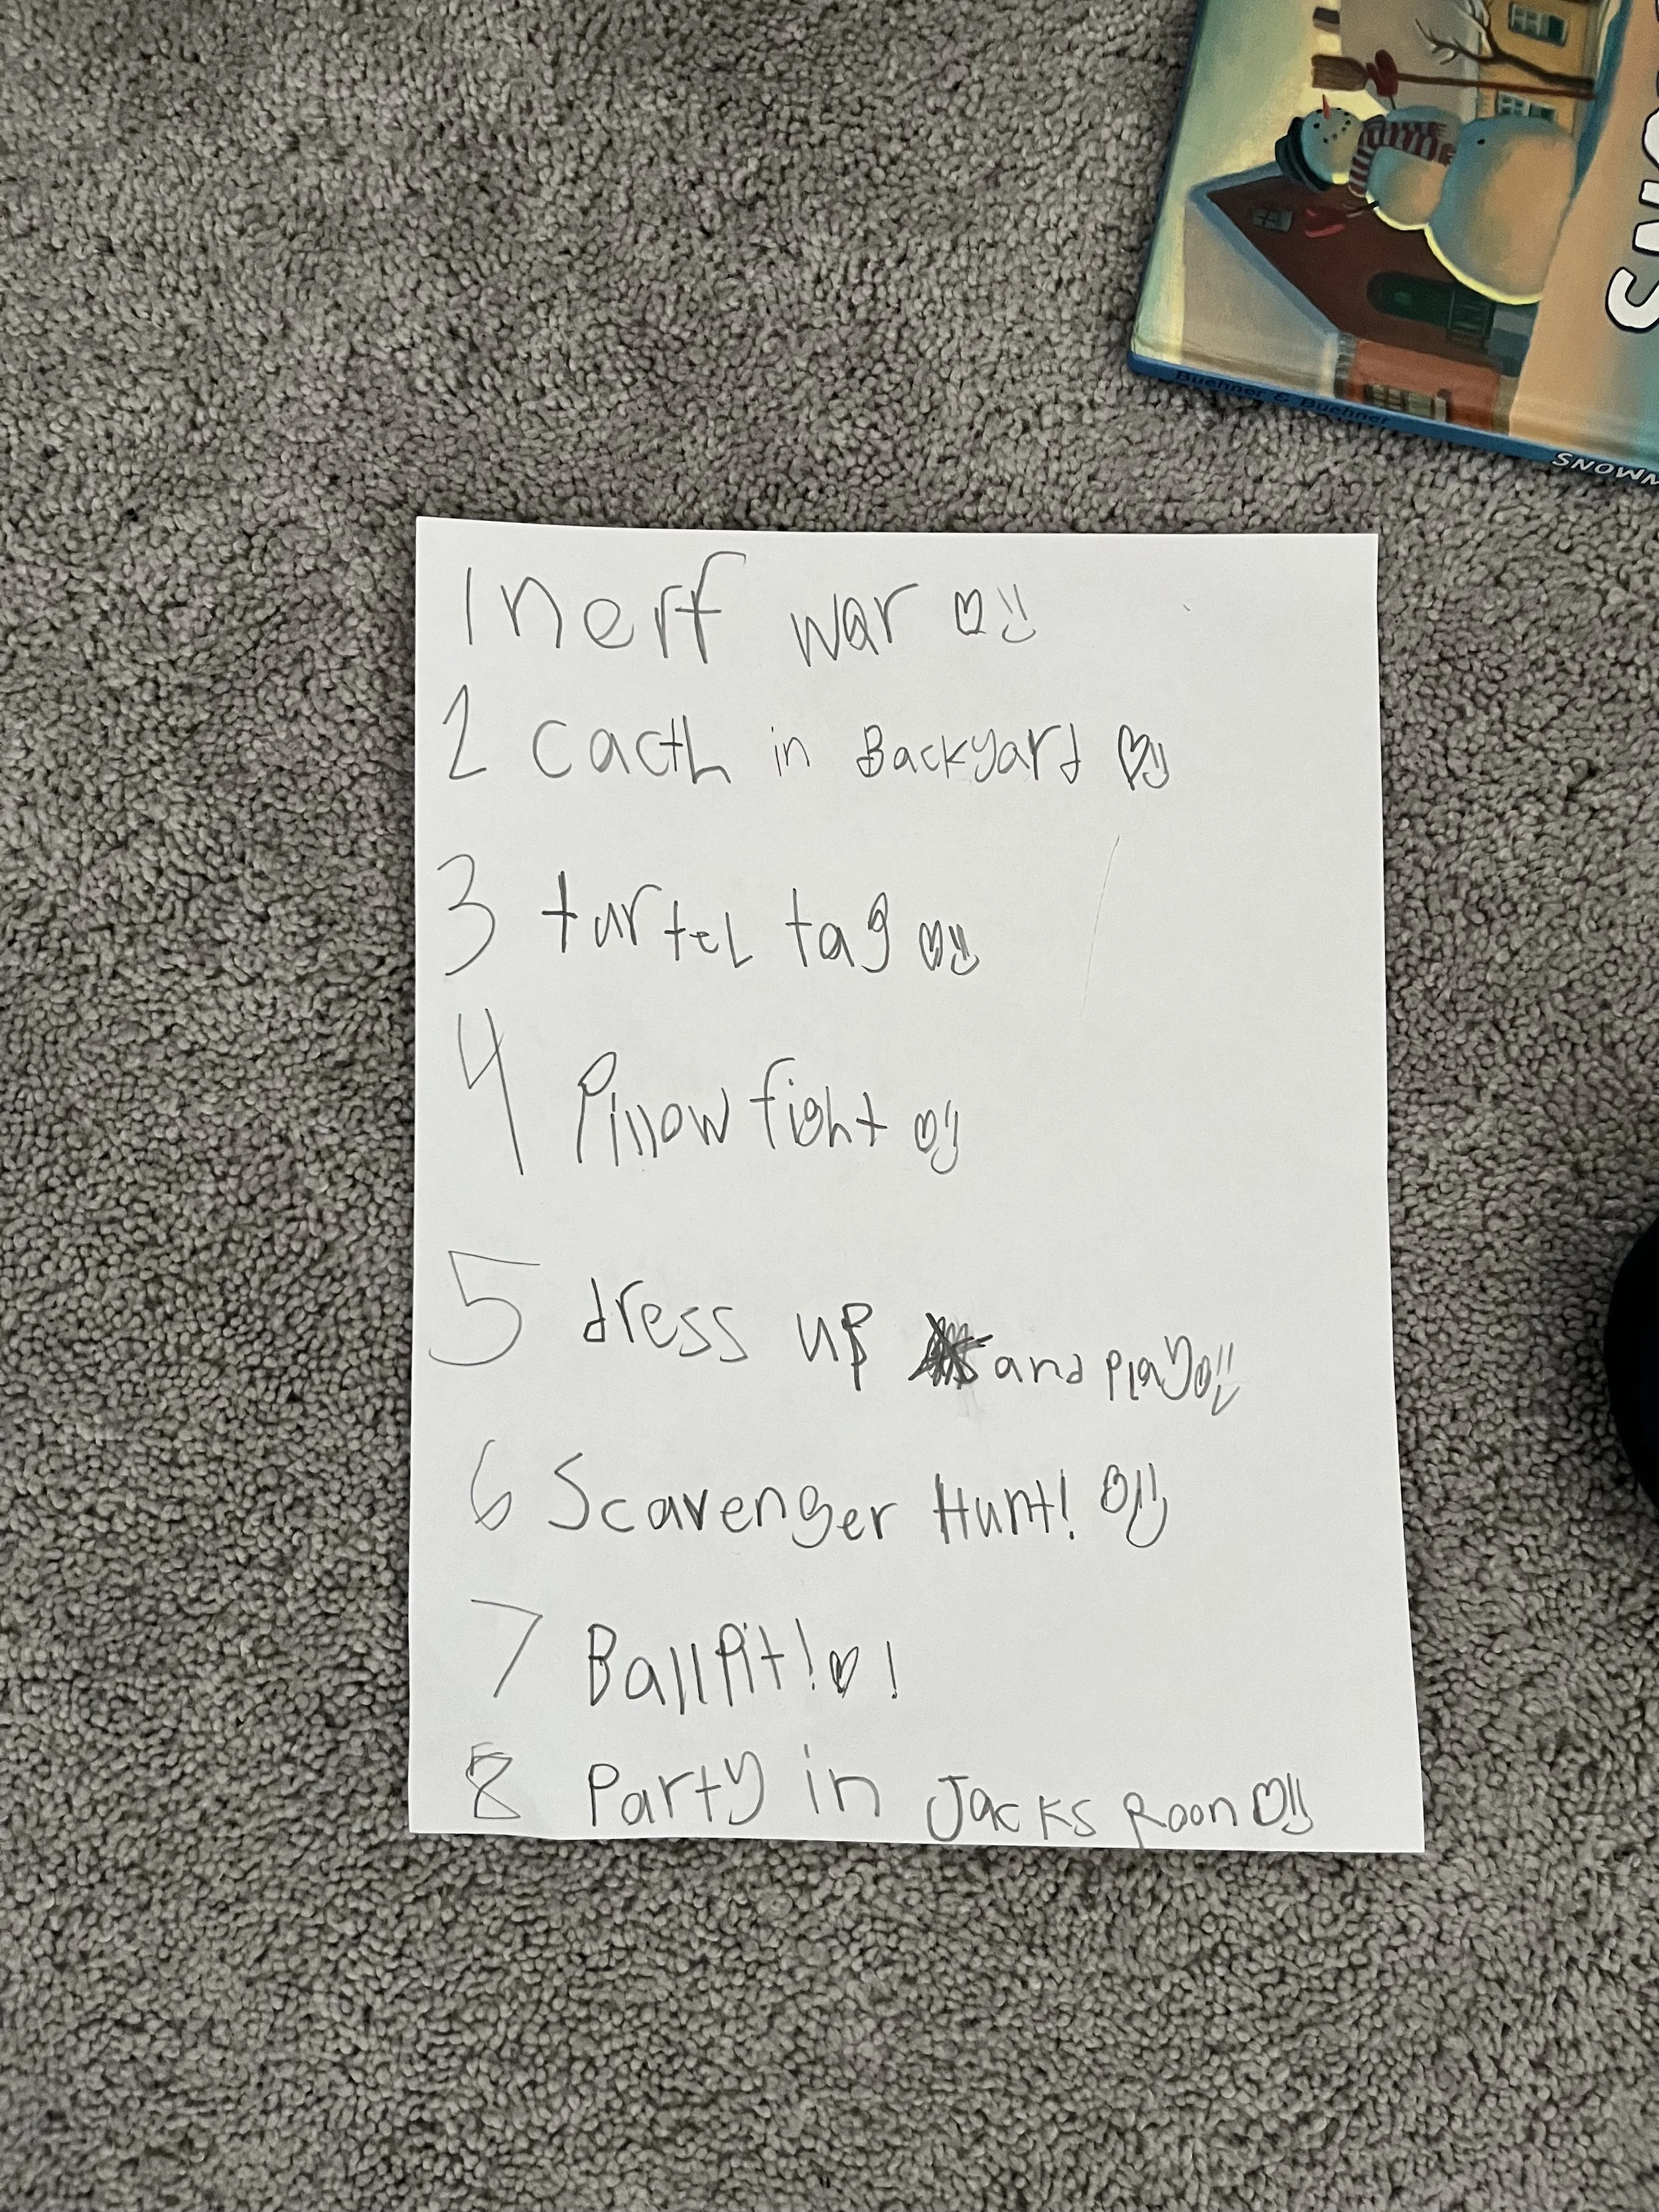 SNO
Buehner & Buehner
SNOWM
1 nerf war ♡
2 Cacth in Backyard ♡
3 turtel tag ♡
4 Pillow fight ♡
5 dress up and Play ♡
6 Scavenger Hunt! ♡
7 Ball Pit! ♡ !
8 Party in Jacks Roon ♡